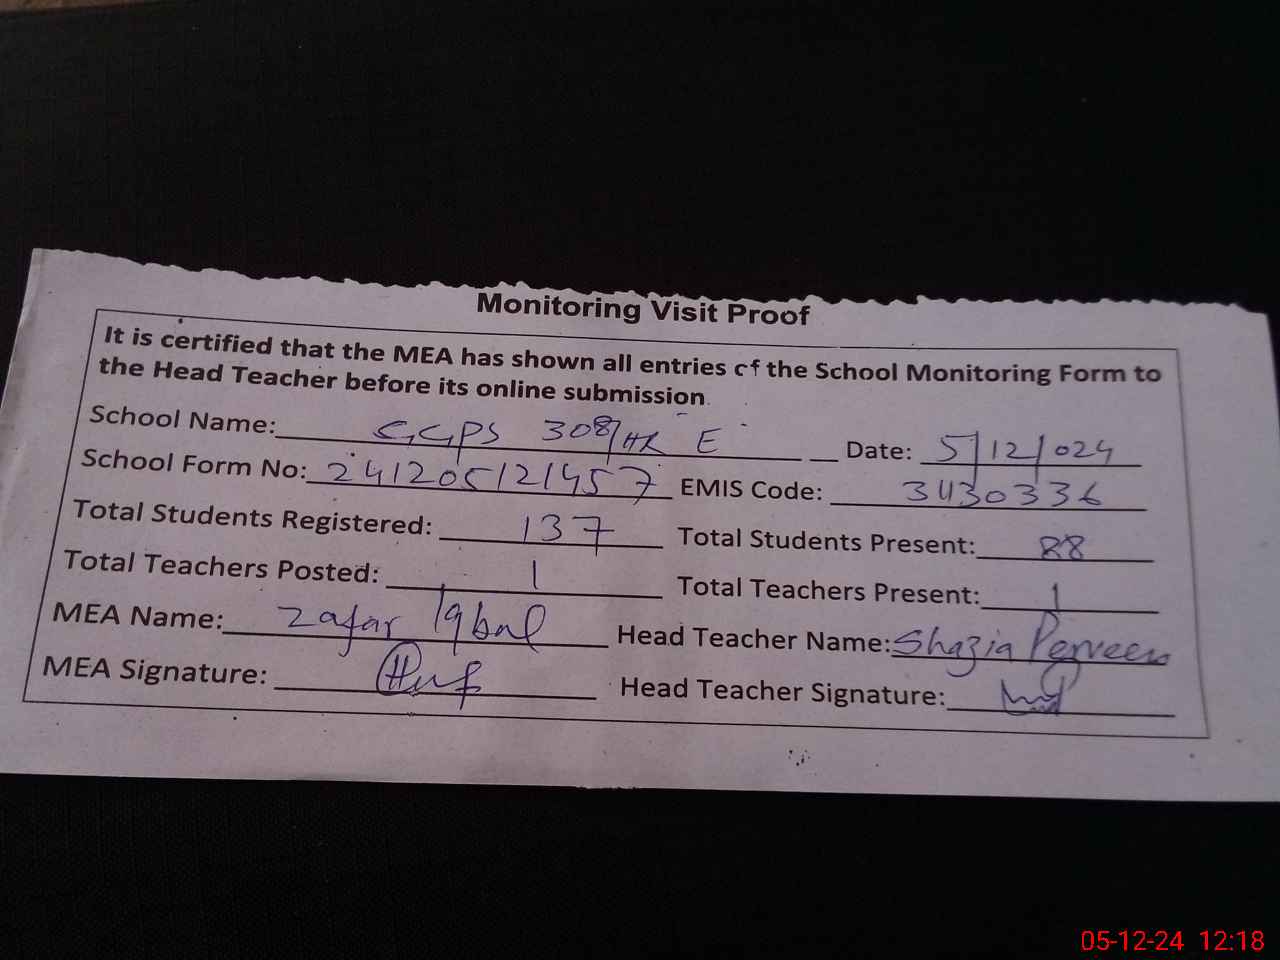 Monitoring Visit Proof
It is certified that the MEA has shown all entries of the School Monitoring Form to
the Head Teacher before its online submission.
School Name: GGPS 308/HR E Date: 5/12/024
School Form No: 241205121457 EMIS Code: 31130336
Total Students Registered: 137 Total Students Present: 88
Total Teachers Posted: 1 Total Teachers Present: 1
MEA Name: Zafar Iqbal Head Teacher Name: Shazia Perveen
MEA Signature: Head Teacher Signature:
05-12-24 12:18